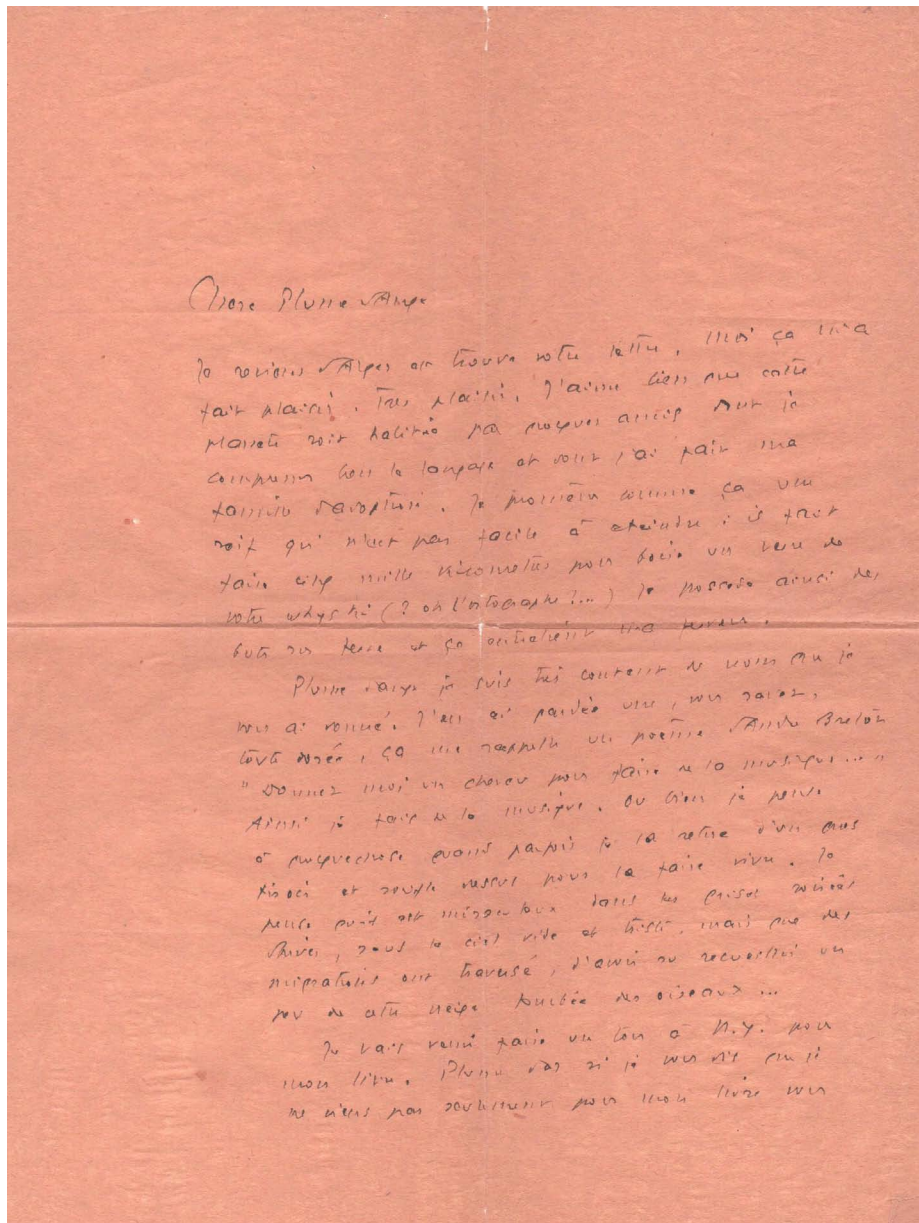 Chère Plume d'Ange
Je reviens d'Alpes et trouve votre lettre. Moi ça m'a
fait plaisir. Très plaisir. J'aime bien que cette
planète soit habitée par quelques amies dont je
comprenne bien le langage et dont j'ai fait ma
famille d'adoption. Je comme ça une
soif qui n'est pas facile à ateindre : il faut
faire cinq mille kilomètres pour boire un verre de
votre whyski (? oh l'ortographe ?...) Je possède ainsi des
buts sur terre et ça entretient ma ferveur.
Plume d'ange je suis très content du nom que je
vous ai donné. J'en ai gardée une, vous savez,
toute dorée, ça me rappelle un poème d'André Breton
"Donnez moi un cheveu pour faire de la musique..."
Ainsi je fais de la musique. Ou bien je pense
à quelquechose quand parfois je la retire d'un gros
et souffle dessus pour la faire vivre. Je
pense qu'il est miraculeux dans les grises soirées
d'hiver, sous le ciel vide et triste, mais que des
migrations ont traversé, d'avoir su recueillir un
peu de cette neige tombée des oiseaux...
Je vais venir faire un tour à N.Y. pour
mon livre. Plume d'or si je vous dis que je
ne viens pas seulement pour mon livre vous